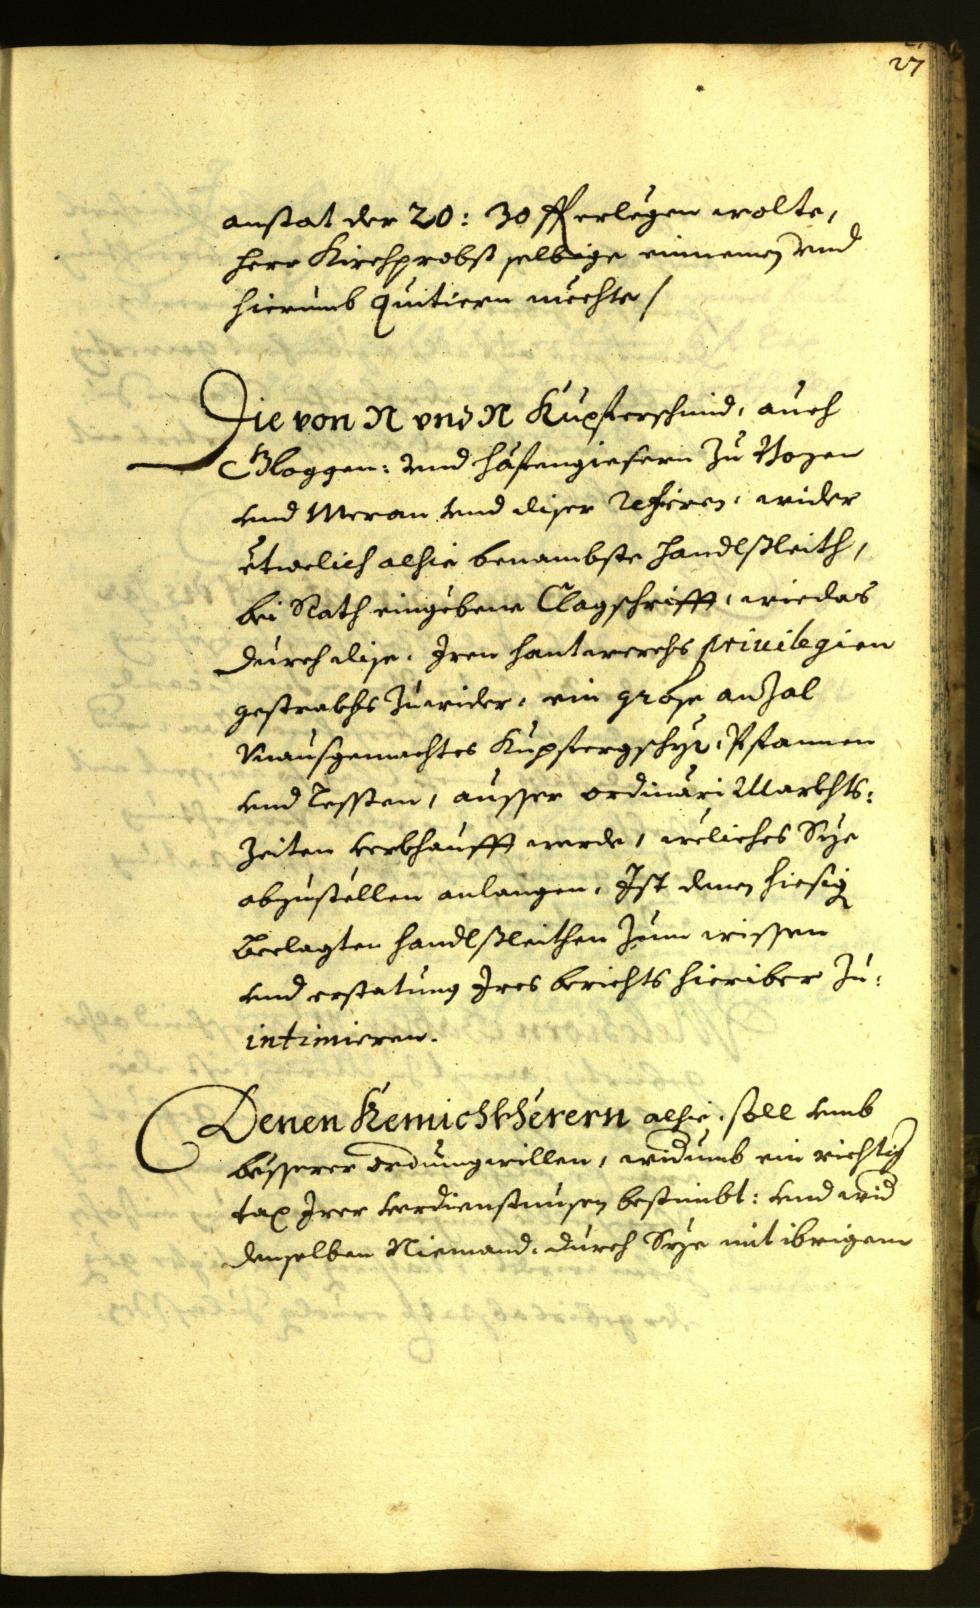 27
anstat der 20: 30 fl erlegen wolte,
herr Kirchprobst selbige einnemen vnd
hierumb quitiern mechte /
Die von N vnd N Kupferschmid, auch
Gloggen: vnd Häfengiessern zu Bozen
vnd Meran vnd diser Refieren, wider
etwelich alhie benambste Handlßleith,
bei Rath eingebene Clagschrifft, wie das
durch dise, Iren hantwerchs privilegien
gestrakhs zuwider, ein grosse anzal
Vnausgemachtes Kupfergschyr, Pfannen
vnd Kessten, ausser ordinari Markhts:
zeiten verkhaufft werde, weliches Sye
abzustellen anlangen, Ist denen hiesig
Beclagten Handlßleithen zum wissen
vnd erstatung Ires berichts hieriber zu:
intimieren.
Denen Kemichkherern alhie, soll vmb
besserer ordnung willen, widumb ein richtig
tax Irer verdienstnussen bestimbt: vnd wid
denselben Niemand, durch Sye mit ibrigem